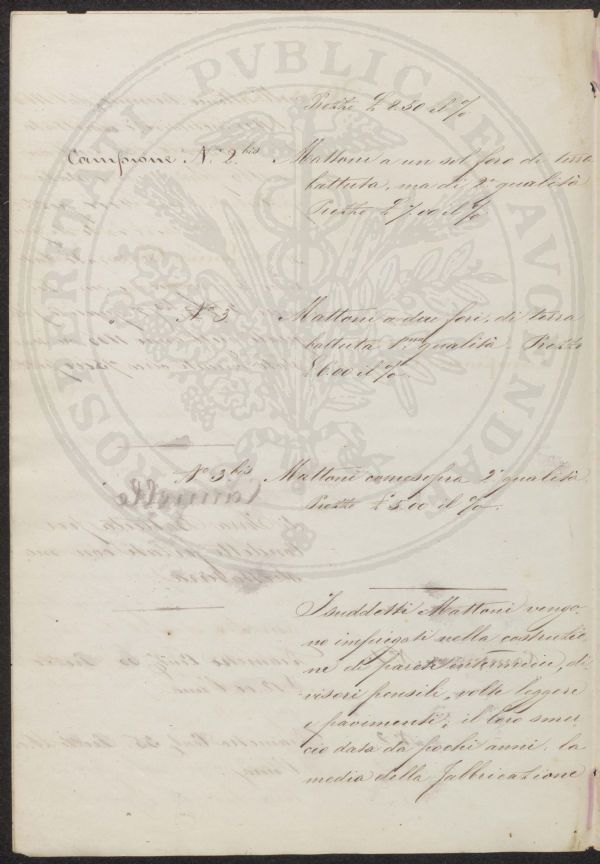 Prezzo £ 8.50 il %
Campione N.° 2 bis Mattoni a un sol foro di terra
battuta, ma di 2ª qualità
Prezzo £ 7.00 il %
N° 3 Mattoni a due fori, di terra
battuta 1ma qualità. Prezzo
£ 6.00 il %.
N° 3 bis Mattoni comesopra 2ª qualità
Prezzo £ 5.00 il %.
I suddetti Mattoni vengo-
no impiegati nella costruzio-
ne di pareti intermedie, di-
visori pensili, volte leggere
e pavimenti; il loro smer-
cio data da pochi anni. la
media della fabbricazione
PROSPERITATI PVBLICAE AVGENDAE